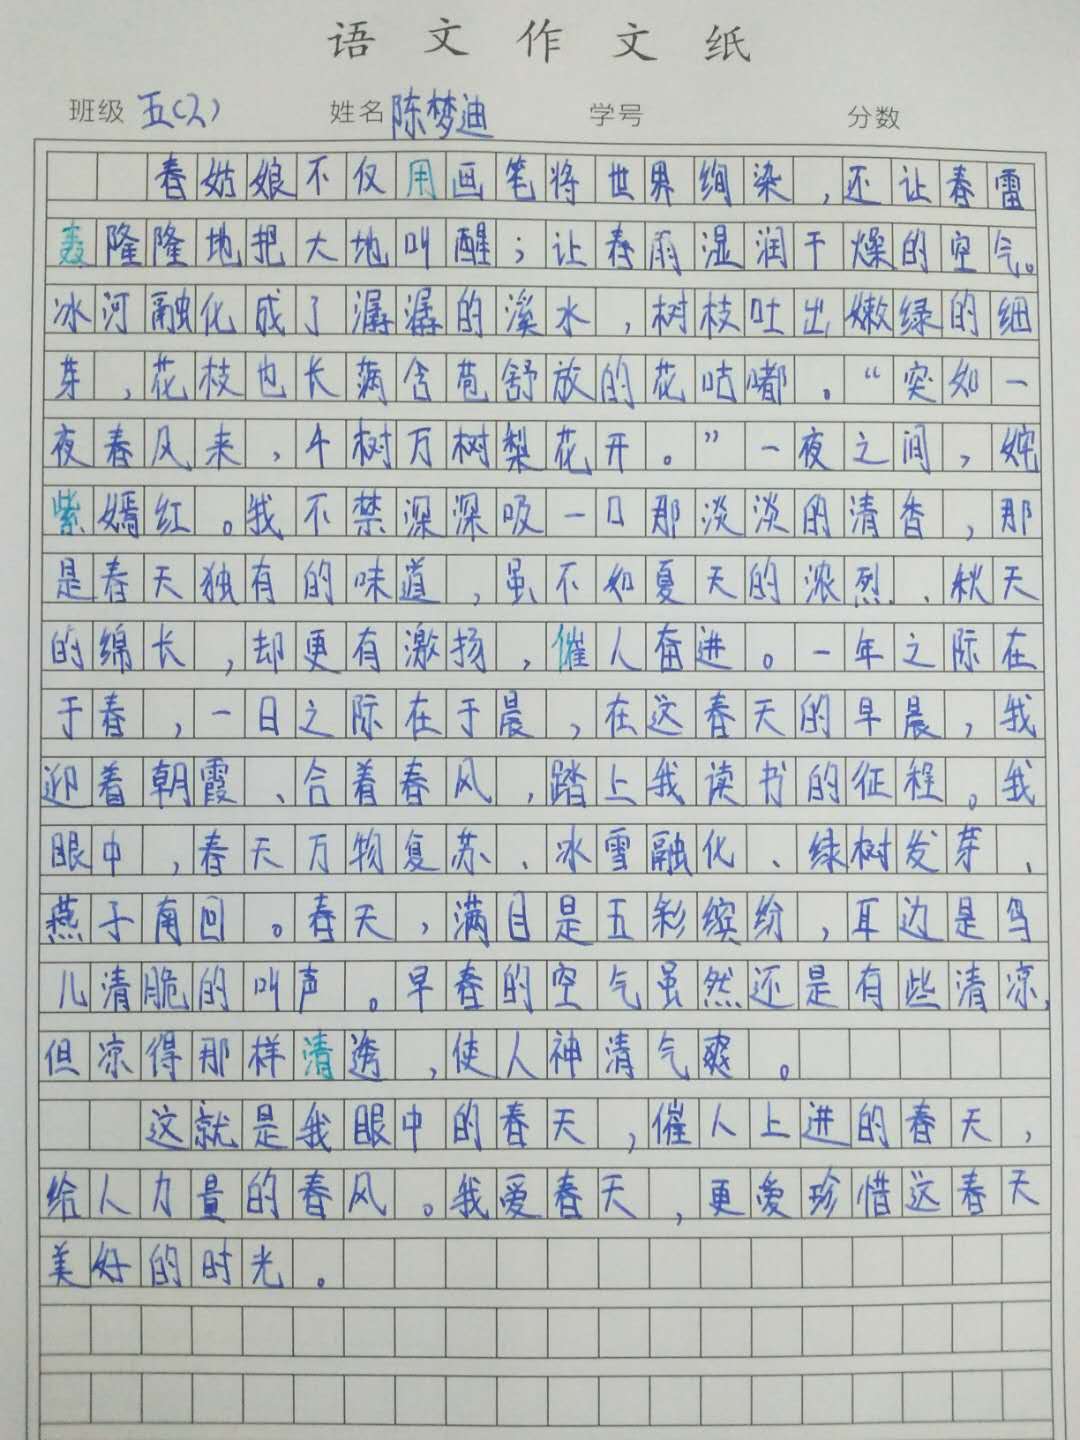 语文作文纸
班级 五(2) 姓名 陈梦迪 学号 分数
春姑娘不仅用画笔将世界绚染,还让春雷
轰隆隆地把大地叫醒;让春雨湿润干燥的空气。
冰河融化成了潺潺的溪水,树枝吐出嫩绿的细
芽,花枝也长满含苞舒放的花咕嘟。“突如一
夜春风来,千树万树梨花开。”一夜之间,姹
紫嫣红。我不禁深深吸一口那淡淡的清香,那
是春天独有的味道,虽不如夏天的浓烈、秋天
的绵长,却更有激扬,催人奋进。一年之际在
于春,一日之际在于晨,在这春天的早晨,我
迎着朝霞、合着春风,踏上我读书的征程。我
眼中,春天万物复苏、冰雪融化、绿树发芽、
燕子南回。春天,满目是五彩缤纷,耳边是鸟
儿清脆的叫声。早春的空气虽然还是有些清凉,
但凉得那样清透,使人神清气爽。
这就是我眼中的春天,催人上进的春天,
给人力量的春风。我爱春天,更爱珍惜这春天
美好的时光。